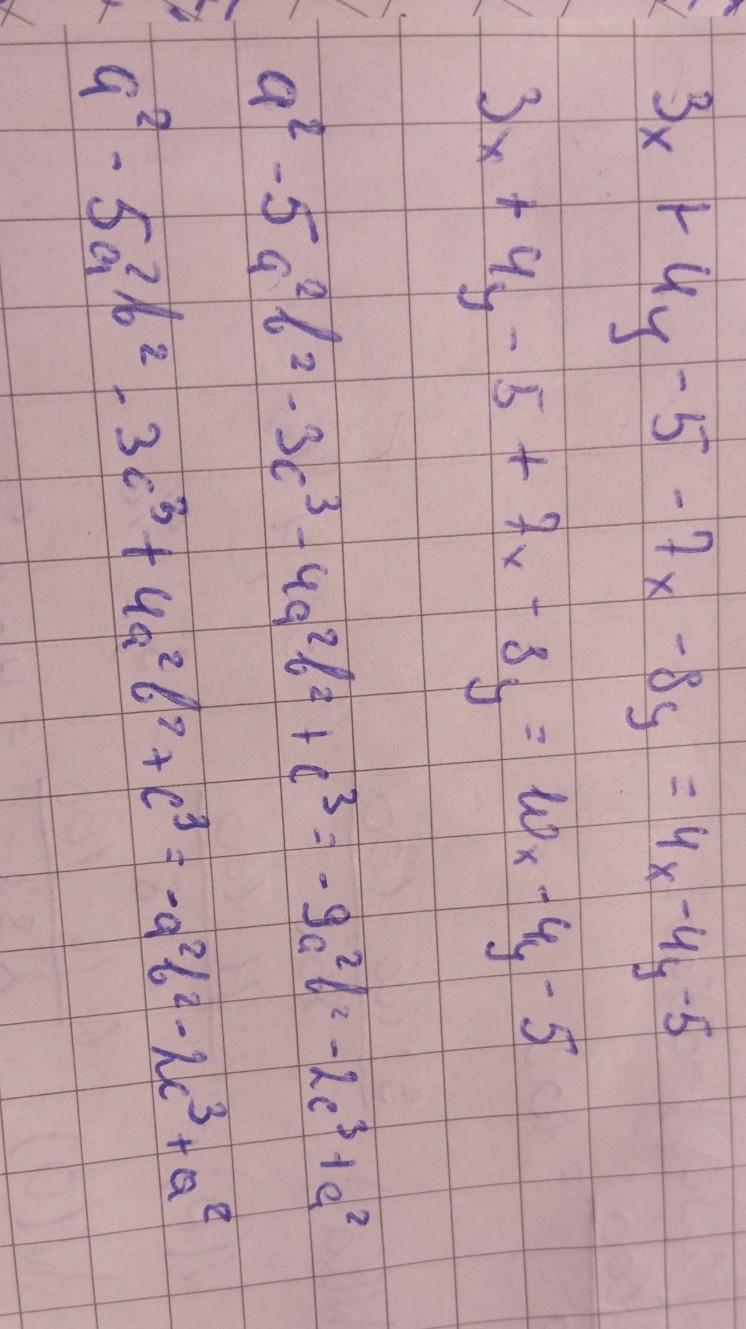 3x + 4y - 5 - 7x - 8y = 4x - 4y - 5
3x + 4y - 5 + 7x - 8y = 10x - 4y - 5
a² - 5a²b² - 3c³ - 4a²b² + c³ = -9a²b² - 2c³ + a²
a² - 5a²b² - 3c³ + 4a²b² + c³ = -a²b² - 2c³ + a²